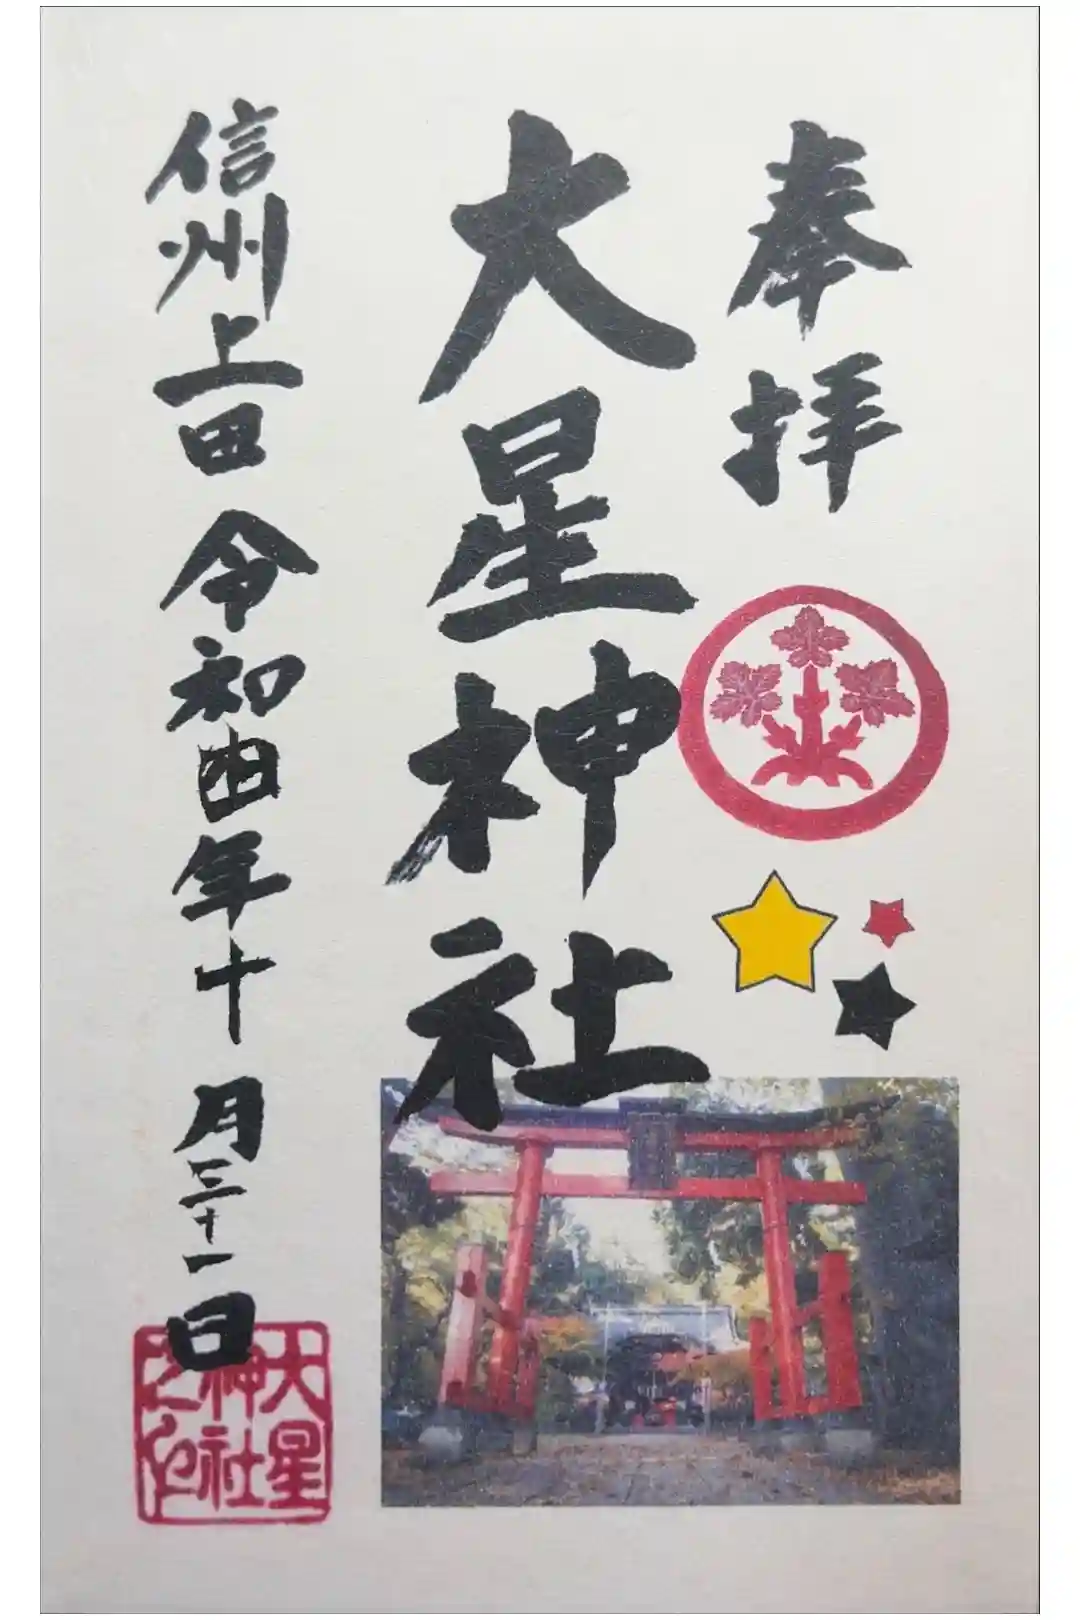 奉拝
大星神社
信州上田 令和四年十月三十一日
大星
神社
之印